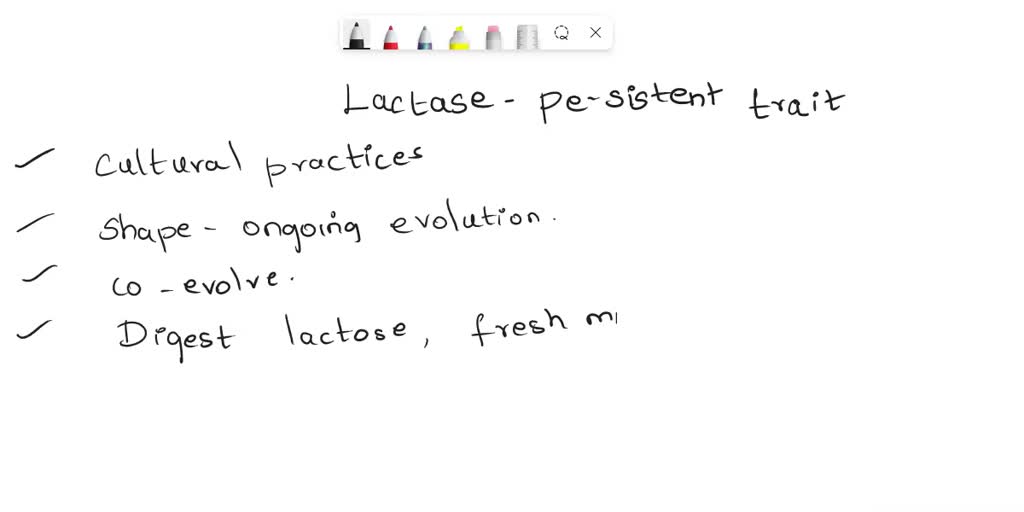 Lactase - pe-sistent trait
Cultural practices
Shape - ongoing evolution.
co - evolve.
Digest lactose, fresh m